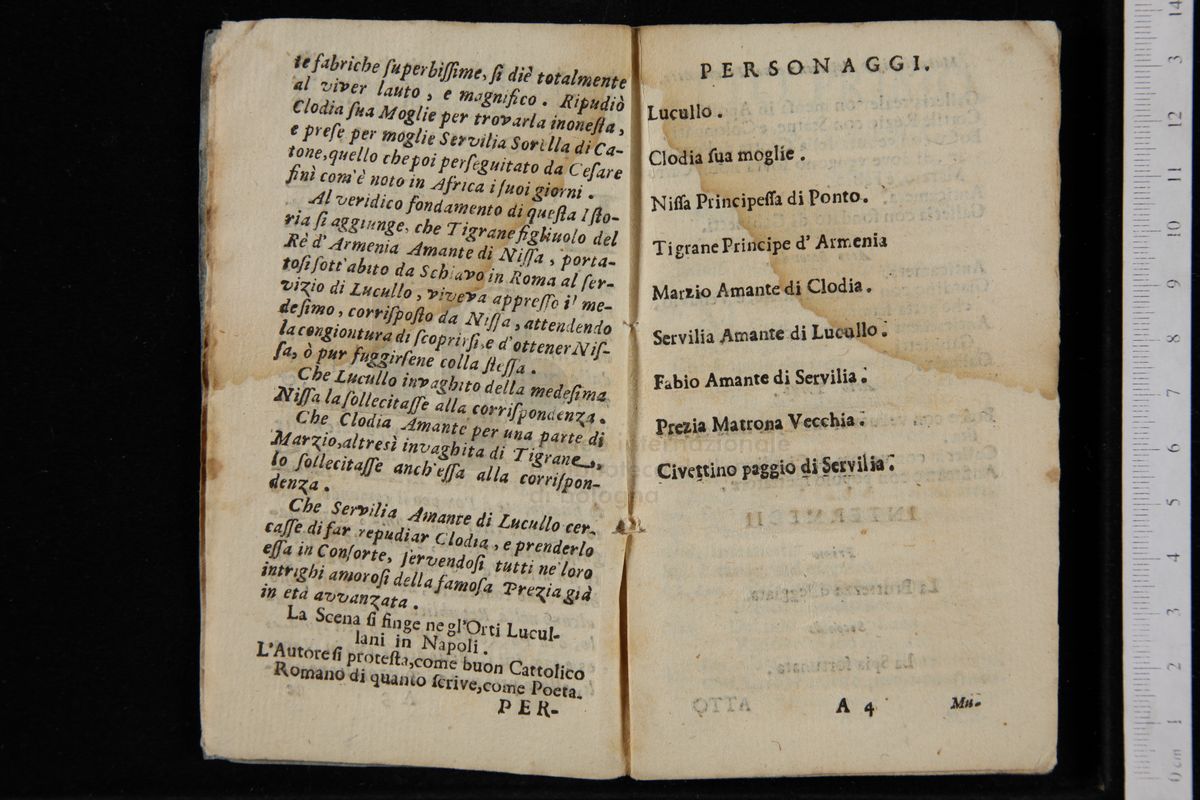 te fabriche ſuperbiſſime, ſi diè totalmente
al viver lauto, e magnifico. Ripudiò
Clodia ſua Moglie per trovarla inoneſta,
e preſe per moglie Servilia Sorella di Ca-
tone, quello che poi perſeguitato da Ceſare
finì com'è noto in Africa i ſuoi giorni.
Al veridico fondamento di queſta Iſto-
ria ſi aggiunge, che Tigrane figliuolo del
Rè d'Armenia Amante di Niſſa, porta-
toſi ſott'abito da Schiavo in Roma al ſer-
vizio di Lucullo, viveva appreſſo il me-
deſimo, corriſpoſto da Niſſa, attendendo
la congiontura di ſcoprirſi, e d'ottener Niſ-
ſa, ò pur fuggirſene colla ſteſſa.
Che Lucullo invaghito della medeſima
Niſſa la ſollecitaſſe alla corriſpondenza.
Che Clodia Amante per una parte di
Marzio, altresì invaghita di Tigrane,
lo ſollecitaſſe anch'eſſa alla corriſpon-
denza.
Che Servilia Amante di Lucullo cer-
caſſe di far repudiar Clodia, e prenderlo
eſſa in Conſorte, ſervendoſi tutti ne'loro
intrighi amoroſi della famoſa Prezia già
in età avvanzata.
La Scena ſi finge negl'Orti Lucul-
lani in Napoli.
L'Autore ſi proteſta, come buon Cattolico
Romano di quanto ſcrive, come Poeta.
PER-
PERSONAGGI.
Lucullo.
Clodia ſua moglie.
Niſſa Principeſſa di Ponto.
Tigrane Principe d'Armenia
Marzio Amante di Clodia.
Servilia Amante di Lucullo.
Fabio Amante di Servilia.
Prezia Matrona Vecchia.
Civettino paggio di Servilia.
A 4
Mu-